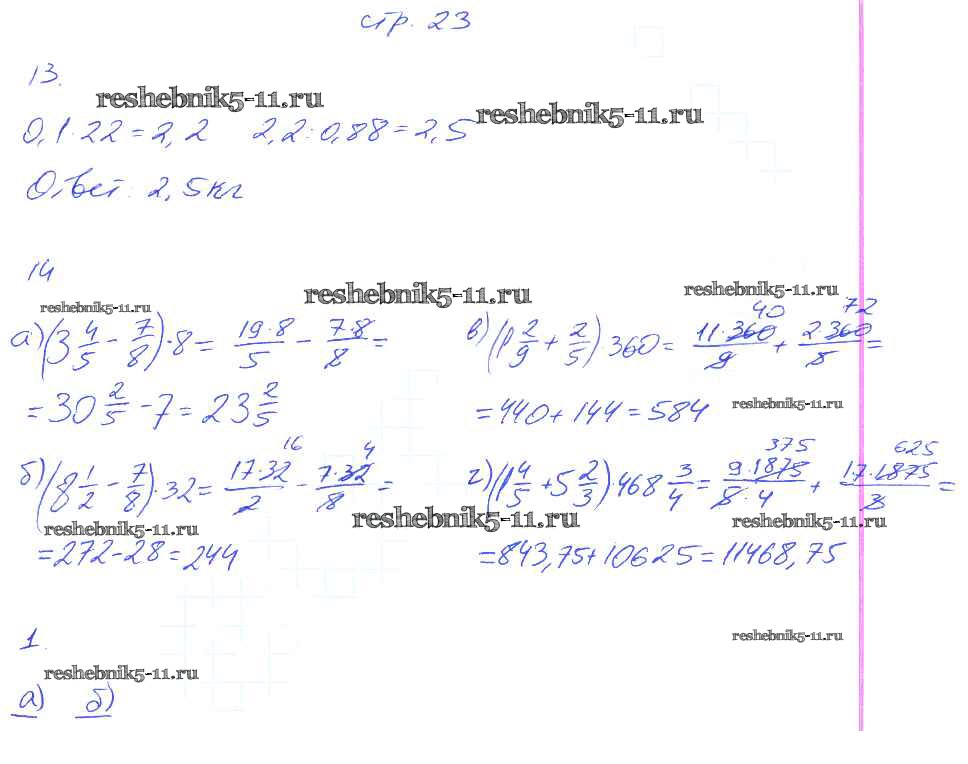 стр. 23
13.
reshebnik5-11.ru
reshebnik5-11.ru
0,1·22=2,2 2,2:0,88=2,5
Ответ: 2,5кг
14
reshebnik5-11.ru
reshebnik5-11.ru
reshebnik5-11.ru
а)(3 4/5 - 7/8)·8 = 19·8/5 - 7·8/8 =
= 30 2/5 - 7 = 23 2/5
в)(1 2/9 + 2/5)·360 = 11·360/9 + 2·360/5 =
40 72
= 440 + 144 = 584
reshebnik5-11.ru
б)(8 1/2 - 7/8)·32 = 17·32/2 - 7·32/8 =
16 4
reshebnik5-11.ru
= 272 - 28 = 244
г)(1 4/5 + 5 2/3)·468 3/4 = 9·1875/5·4 + 17·1875/3 =
375 625
reshebnik5-11.ru
reshebnik5-11.ru
= 843,75 + 10625 = 11468,75
1.
reshebnik5-11.ru
reshebnik5-11.ru
а) б)